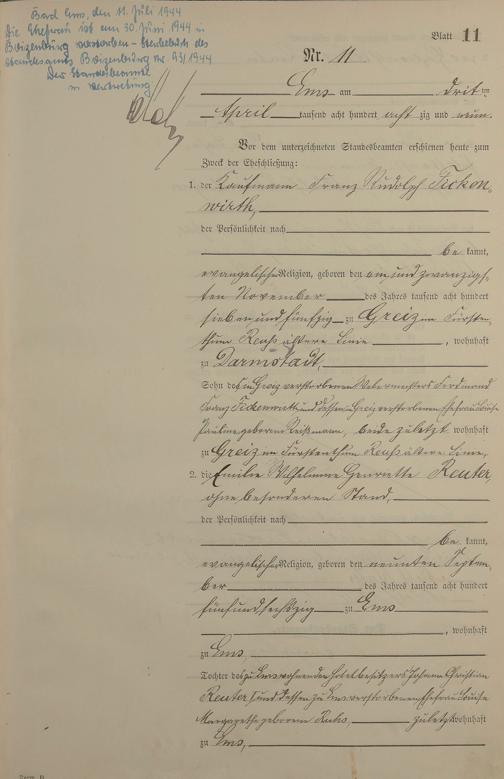 Bad Ems, den 11. Juli 1944
Die Ehefrau ist am 30. Juni 1944 in
Boizenburg verstorben - Sterbebuch des
Standesamts Boizenburg Nr. 93/1944
Der Standesbeamte
in Vertretung
Blatt 11
Nr. 11
Ems am dritten
April tausend acht hundert acht zig und neun.
Vor dem unterzeichneten Standesbeamten erschienen heute zum
Zweck der Eheschließung:
1. der Kaufmann Franz Rudolph
wirth,
der Persönlichkeit nach
be kannt,
evangelischer Religion, geboren den ein und zwanzigs-
ten November des Jahres tausend acht hundert
sieben und fünfzig zu Greiz im Fürsten-
thum Reuß ältere Linie, wohnhaft
zu Darmstadt,
Sohn des in Greiz verstorbenen Webermeisters Ferdinand
Franz und dessen in Greiz verstorbenen Ehefrau Louise
Pauline geborene, beide zuletzt wohnhaft
zu Greiz im Fürstenthum Reuß ältere Linie,
2. die Emilie Wilhelmine Henriette Reuter,
ohne besonderen Stand,
der Persönlichkeit nach
be kannt,
evangelischer Religion, geboren den neunten Septem-
ber des Jahres tausend acht hundert
fünfundsechszig zu Ems
, wohnhaft
zu Ems,
Tochter des zu Ems wohnenden Hotelbesitzers Johann Christian
Reuter und dessen zu Ems verstorbenen Ehefrau Louise
Margarethe geborenen, zuletzt wohnhaft
zu Ems,